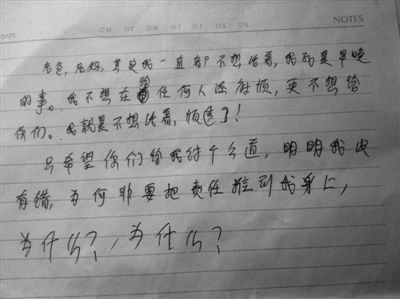 DATE OM OT OW OT OF OS OS NOTES
爸爸，妈妈，其实我一直都不想活着，我死是早晚
的事。我不想在给任何人添麻烦，更不想给
你们。我就是不想活着，烦透了！
只希望你们给我讨个公道，明明我没
有错，为何非要把责任推到我身上，
为什么？，为什么？